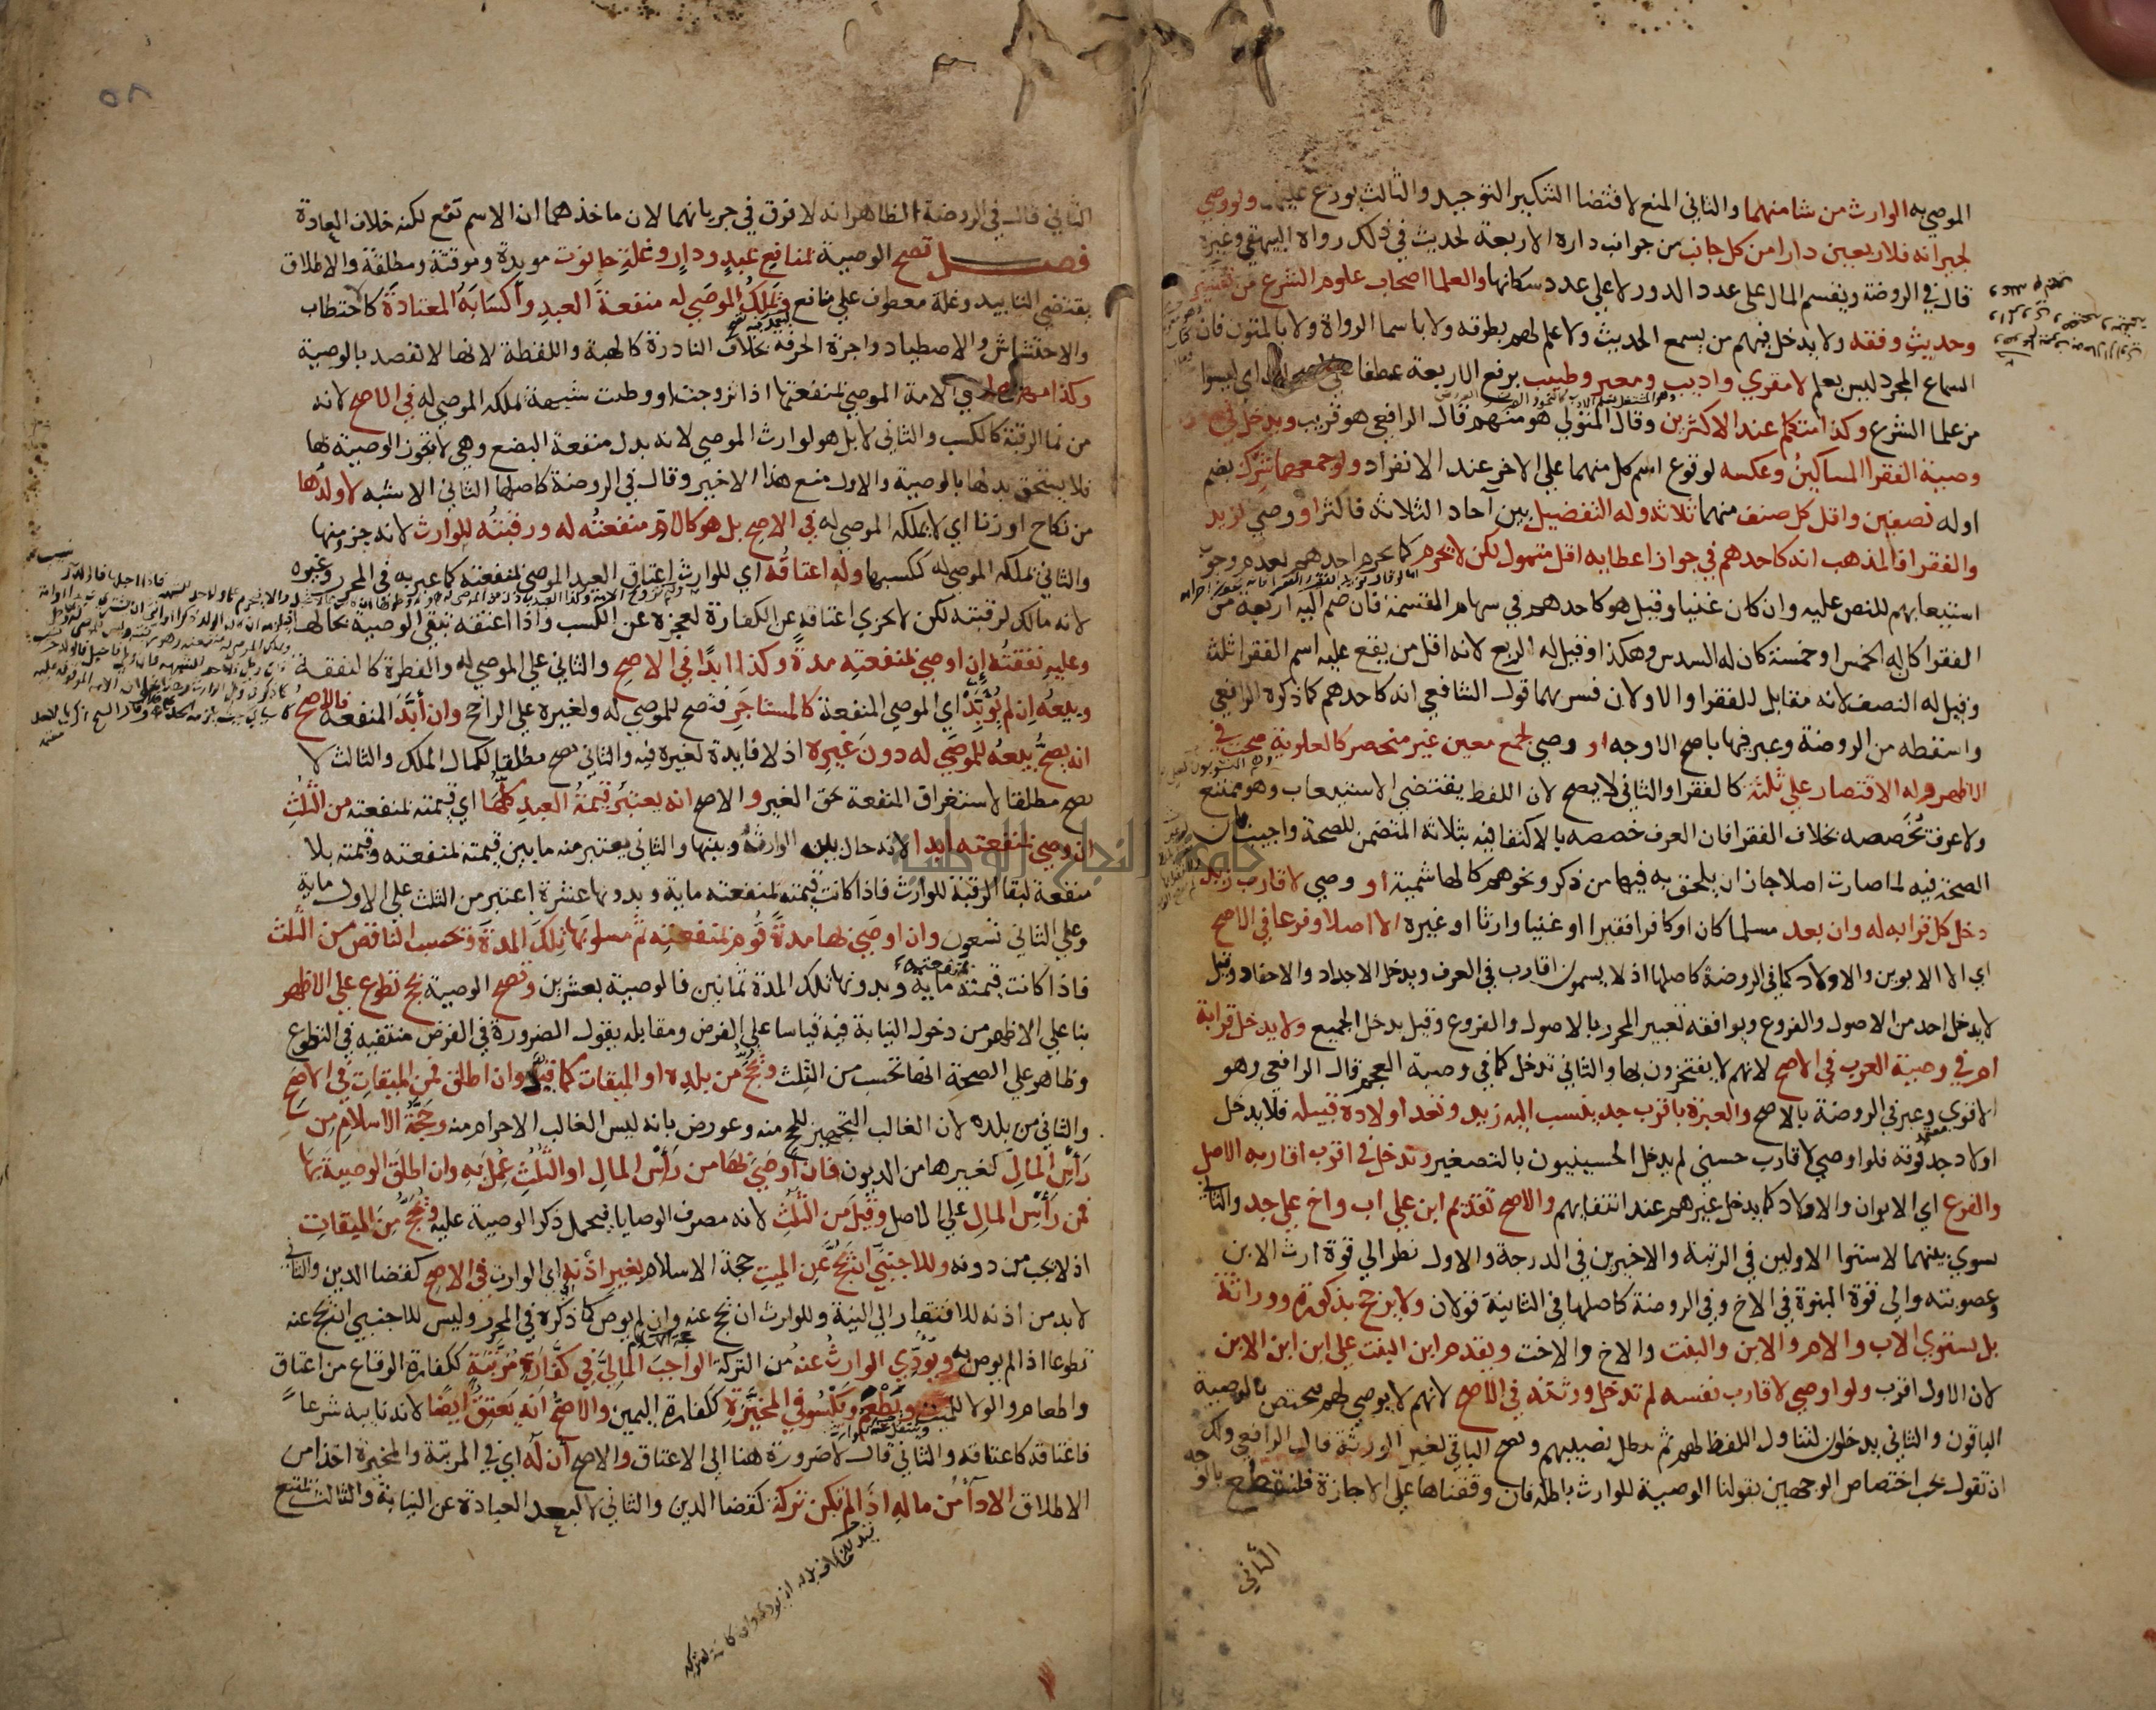 الموصي به الوارث من شا منهما والثاني المنع لاقتضا التنكير التوحيد والثالث يوزع عليهما ولو وصي
لجيرانه فلاربعين دارا من كل جانب من جوانب داره الاربعة لحديث في ذلك رواه البيهقي وغيره
قال في الروضة ويقسم المال على عدد الدور لا على عدد سكانها والعلما اصحاب علوم الشرع من تفسير
وحديث وفقه ولا يدخل فيهم من يسمع الحديث ولا علم لهم بطرقه ولا باسما الرواة ولا بالمتون فان
السماع المجرد ليس بعلم لا مقري واديب ومعبر وطبيب برفع الاربعة عطفا علي اي ليسوا
من علما الشرع وكذا متكلم عند الاكثرين وقال المتولي هو منهم قال الرافعي هو قريب ويدخل في
وصية الفقرا المساكين وعكسه لوقوع اسم كل منهما علي الاخر عند الانفراد ولو جمعهما شرك بضم
اوله نصفين واقل كل صنف منهما ثلاثة وله التفضيل بين آحاد الثلاثة فاكثر او وصي لزيد
والفقرا فالمذهب انه كاحدهم في جواز اعطايه اقل متمول لكن لا يحرم كما يحرم احدهم لعدم وجوب
استيعابهم للنص عليه وان كان غنيا وقيل هو كاحدهم في سهام القسمة فان ضم اليه اربعة من
الفقرا كان له الخمس او خمسة كان له السدس وهكذا وقيل له الربع لانه اقل من يقع عليه اسم الفقرا ثلثة
وقيل له النصف لانه مقابل للفقرا والاولان فسر بهما قول الشافعي انه كاحدهم كما ذكره الرافعي
واسقطه من الروضة وعبر فيها باصح الاوجه او وصي لجمع معين غير منحصر كالعلوية صحت في
الاظهر وله الاقتصار علي ثلثة كالفقرا والثاني لا يصح لان اللفظ يقتضي الاستيعاب وهو ممتنع
ولا عرف يخصصه بخلاف الفقرا فان العرف خصصه بالاكتفا فيه بثلاثة المتضمن للصحة واجيب بان
الصحة فيه لما صارت اصلا جاز ان يلحق به فيها من ذكر ونحوهم كالهاشمية او وصي لاقارب زيد
دخل كل قرابه له وان بعد مسلما كان او كافرا فقيرا او غنيا وارثا او غيره الا اصلا وفرعا في الاصح
اي الا الابوين والاولاد كما في الروضة كاصلها اذ لا يسمون اقارب في العرف ويدخل الاجداد والاحفاد وقيل
لا يدخل احد من الاصول والفروع ويوافقه تعبير المحرر بالاصول والفروع وقيل يدخل الجميع ولا يدخل قرابة
ام في وصية العرب في الاصح لانهم لا يفتخرون بها والثاني تدخل كما في وصية العجم قال الرافعي وهو
الاقوي وعبر في الروضة بالاصح والعبرة باقرب جد ينسب اليه زيد وتعد اولاده قبيلة فلا يدخل
اولاد جد فوقه فلو اوصي لاقارب حسني لم يدخل الحسينيون بالتصغير وتدخل في اقرب اقاربه الاصل
والفرع اي الابوان والاولاد كما يدخل غيرهم عند انتفايهم والاصح تقديم ابن علي اب واخ علي جد والثاني
يسوي بينهما لاستوا الاولين في الرتبة والاخيرين في الدرجة والاول نظر الي قوة ارث الابن
وعصوبته والي قوة البنوة في الاخ وفي الروضة كاصلها في الثانية قولان ولا يرجح بذكورة ووراثة
بل يستوي الاب والام والابن والبنت والاخ والاخت ويقدم ابن البنت علي ابن ابن الابن
لان الاول اقرب ولو اوصي لاقارب نفسه لم تدخل ورثته في الاصح لانهم لا يوصي لهم فيختص بالوصية
الباقون والثاني يدخلون لتناول اللفظ لهم ثم يبطل نصيبهم ويصح الباقي لغير الورثة قال الرافعي ولك
ان تقول يجب اختصاص الوجهين بقولنا الوصية للوارث باطلة فان وقفناها علي الاجازة فلنقطع بالوجه
الثاني
٥٨
الثاني قال في الروضة الظاهر انه لا فرق في جريانهما لان ماخذهما ان الاسم تقع لكنه خلاف العادة
فصل تصح الوصية بمنافع عبد ودار وغلة حانوت موبدة وموقتة ومطلقة والاطلاق
يقتضي التابيد وغلة معطوف علي منافع ويملك الموصي له منفعة العبد واكسابه المعتادة كاحتطاب
والاحتشاش والاصطياد واجرة الحرفة بخلاف النادرة كالهبة واللقطة لانها لا تقصد بالوصية
وكذا مهرها اي الامة الموصي بمنفعتها اذا تزوجت او وطيت بشبهة يملكه الموصي له في الاصح لانه
من نما الرقبة كالكسب والثاني لا بل هو لوارث الموصي لانه بدل منفعة البضع وهي لا تجوز الوصية بها
فلا يستحق بدلها بالوصية والاول منع هذا الاخير وقال في الروضة كاصلها الثاني الاشبه لا ولدها
من نكاح او زنا اي لا يملكه الموصي له في الاصح بل هو كالام منفعته له ورقبته للوارث لانه جز منها
والثاني يملكه الموصي له ككسبها وله اعتاقه اي للوارث اعتاق العبد الموصي بمنفعته كما عبر به في المحرر وغيره
لانه مالك لرقبته لكن لا يجزي اعتاقه عن الكفارة لعجزه عن الكسب واذا اعتقه تبقي الوصية بحالها
وعليه نفقته ان اوصي بمنفعته مدة وكذا ابدا في الاصح والثاني علي الموصي له والفطرة كالنفقة
وبيعه ان لم يوبد اي الموصي المنفعة كالمستاجر فتصح للموصي له ولغيره علي الراجح وان أبد المنفعة فالاصح
انه يصح بيعه للموصي له دون غيره اذ لا فايدة لغيره فيه والثاني يصح مطلقا لكمال الملك والثالث لا
يصح مطلقا لاستغراق المنفعة بحق الغير والاصح انه يعتبر قيمة العبد كلها اي قيمته بمنفعته من الثلث
ان وصي بمنفعته ابدا لانه حال بين الوارث وبينها والثاني يعتبر منه ما بين قيمته بمنفعته وقيمته بلا
منفعة لبقا الرقبة للوارث فاذا كانت قيمته بمنفعته ماية وبدونها عشرة اعتبر من الثلث علي الاول ماية
وعلي الثاني تسعون وان اوصي بها مدة قوم بمنفعته ثم مسلوبها تلك المدة وتحسب الناقص من الثلث
فاذا كانت قيمته بمنفعته ماية وبدونها تلك المدة ثمانين فالوصية بعشرين وتصح الوصية بحج تطوع علي الاظهر
بنا علي الاظهر من دخول النيابة فيه قياسا علي الفرض ومقابله يقول الضرورة في الفرض منتفيه في التطوع
وظاهر علي الصحة انها تحسب من الثلث ويحج من بلده او الميقات كما قيد وان اطلق فمن الميقات في الاصح
والثاني من بلده لان الغالب التجهيز للحج منه وعورض بانه ليس الغالب الاحرام منه وحجة الاسلام من
رأس المال كغيرها من الديون فان أوصي بها من رأس المال او الثلث عمل به وان اطلق الوصية بها
فمن رأس المال علي الاصل وقيل من الثلث لانه مصرف الوصايا فيحمل ذكر الوصية عليه ويحج من الميقات
اذ لا يجب من دونه وللاجنبي ان يحج عن الميت حجة الاسلام بغير اذنه اي الوارث في الاصح كقضا الدين والثاني
لا بد من اذنه للافتقار الي النية وللوارث ان يحج عنه وان لم يوص كما ذكره في المحرر وليس للاجنبي ان يحج عنه
تطوعا اذا لم يوص به ويودي الوارث عنه من التركة الواجب المالي في كفارة مرتبة ككفارة الوقاع من اعتاق
واطعام والولا للميت ويطعم ويكسو في المخيرة ككفارة اليمين والاصح أنه يعتق ايضا لانه نايبه شرعا
فاعتاقه كاعتاقه والثاني قال لا ضرورة هنا الي الاعتاق والاصح أن له اي في المرتبة والمخيرة اخذا من
الاطلاق الادآ من ماله اذا لم تكن تركة كقضا الدين والثاني لا لبعد العبادة عن النيابة والثالث يمتنع